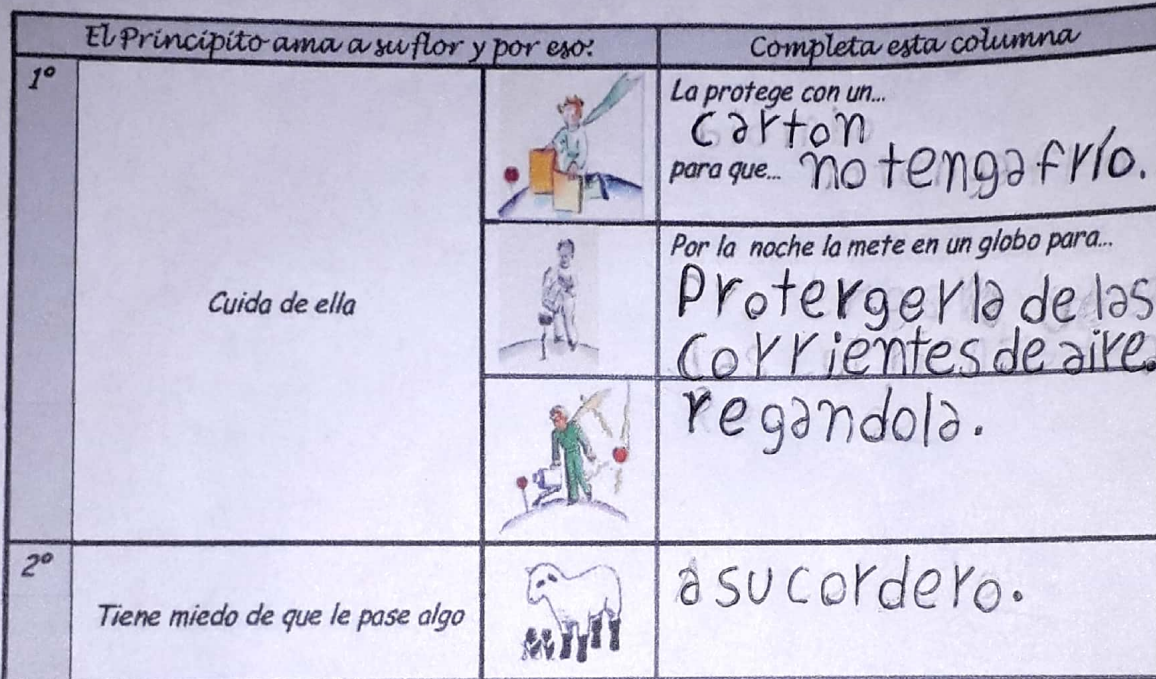 El Principito ama a su flor y por eso:
Completa esta columna
1º
Cuida de ella
La protege con un...
carton
para que... no tenga frío.
Por la noche la mete en un globo para...
Protergerla de las
corrientes de aire.
regandola.
2º
Tiene miedo de que le pase algo
a su cordero.